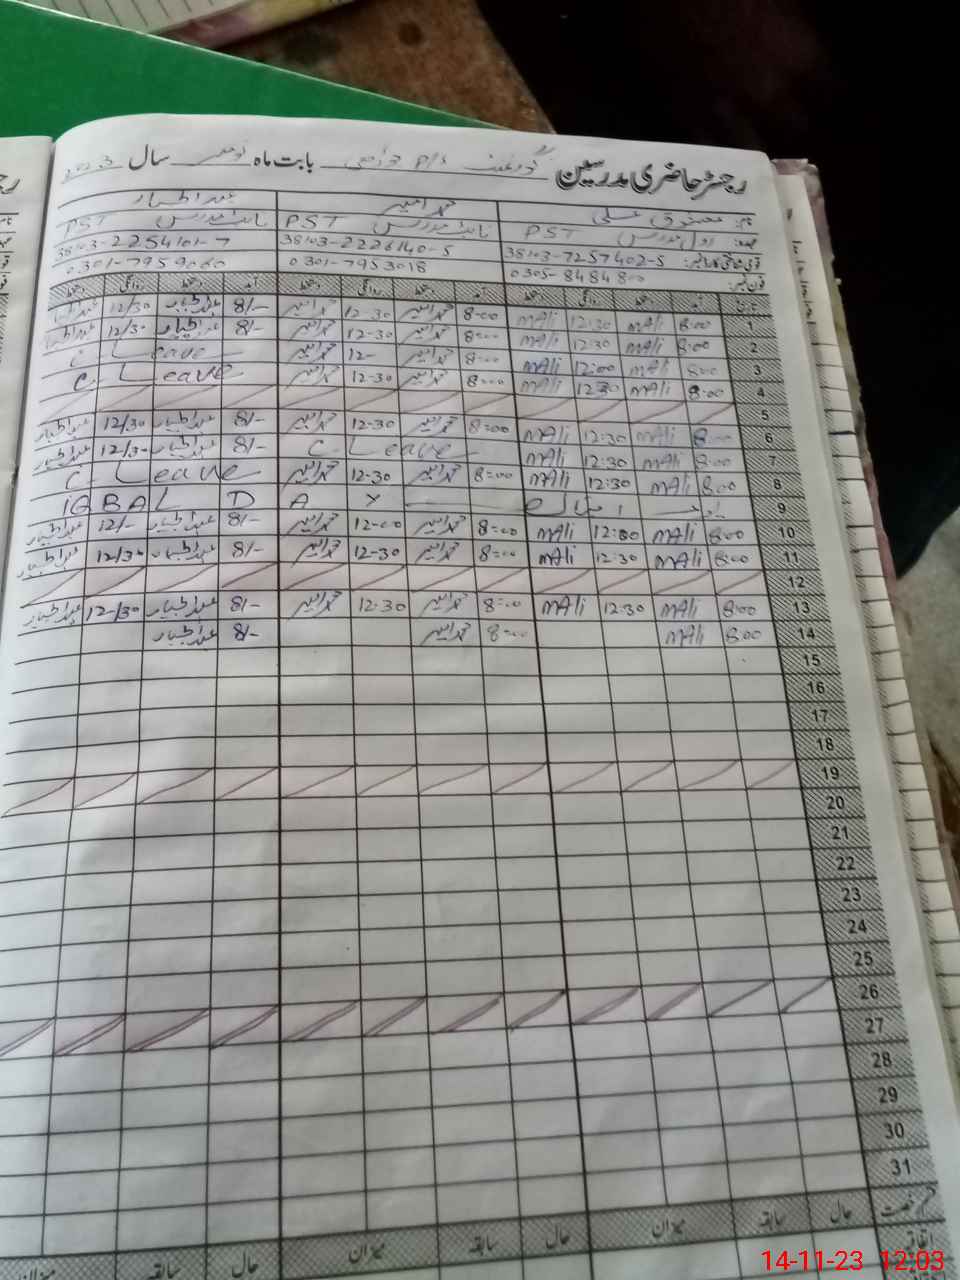 رجسٹر حاضری مدرسین گورنمنٹ P/S بابت ماہ نومبر سال 2023
نام: معشوق علی محمد امین عبدالجبار
عہدہ: اول مدرس PST نائب مدرس PST نائب مدرس PST
قومی شناختی کارڈ نمبر: 38103-7257402-5 38103-2226140-5 38103-2254101-7
فون نمبر: 0305-8484800 0301-7953018 0301-7959060
تاریخ آمد دستخط روانگی دستخط آمد دستخط روانگی دستخط آمد دستخط روانگی دستخط
1 8:00 MAli 12:30 MAli 8:00 محمد امین 12-30 محمد امین 8/- عبدالجبار 12/30 عبدالجبار
2 8:00 MAli 12:30 MAli 8:00 محمد امین 12-30 محمد امین 8/- عبدالجبار 12/30 عبدالجبار
3 8:00 MAli 12:00 MAli 8:00 محمد امین 12- محمد امین C- Leave
4 8:00 MAli 12:30 MAli 8:00 محمد امین 12-30 محمد امین C- Leave
5
6 8:00 MAli 12:30 MAli 8:00 محمد امین 12-30 محمد امین 8/- عبدالجبار 12/30 عبدالجبار
7 8:00 MAli 12:30 MAli C- Leave 8/- عبدالجبار 12/30 عبدالجبار
8 8:00 MAli 12:30 MAli 8:00 محمد امین 12-30 محمد امین C- Leave
9 یوم اقبال IQBAL DAY
10 8:00 MAli 12:00 MAli 8:00 محمد امین 12-00 محمد امین 8/- عبدالجبار 12/- عبدالجبار
11 8:00 MAli 12:30 MAli 8:00 محمد امین 12-30 محمد امین 8/- عبدالجبار 12/30 عبدالجبار
12
13 8:00 MAli 12:30 MAli 8:00 محمد امین 12:30 محمد امین 8/- عبدالجبار 12-/30 عبدالجبار
14 8:00 MAli 8:00 محمد امین 8/- عبدالجبار
15
16
17
18
19
20
21
22
23
24
25
26
27
28
29
30
31
قسم رخصت حال سابقہ میزان حال سابقہ میزان حال سابقہ میزان
اتفاقیہ
14-11-23 12:03